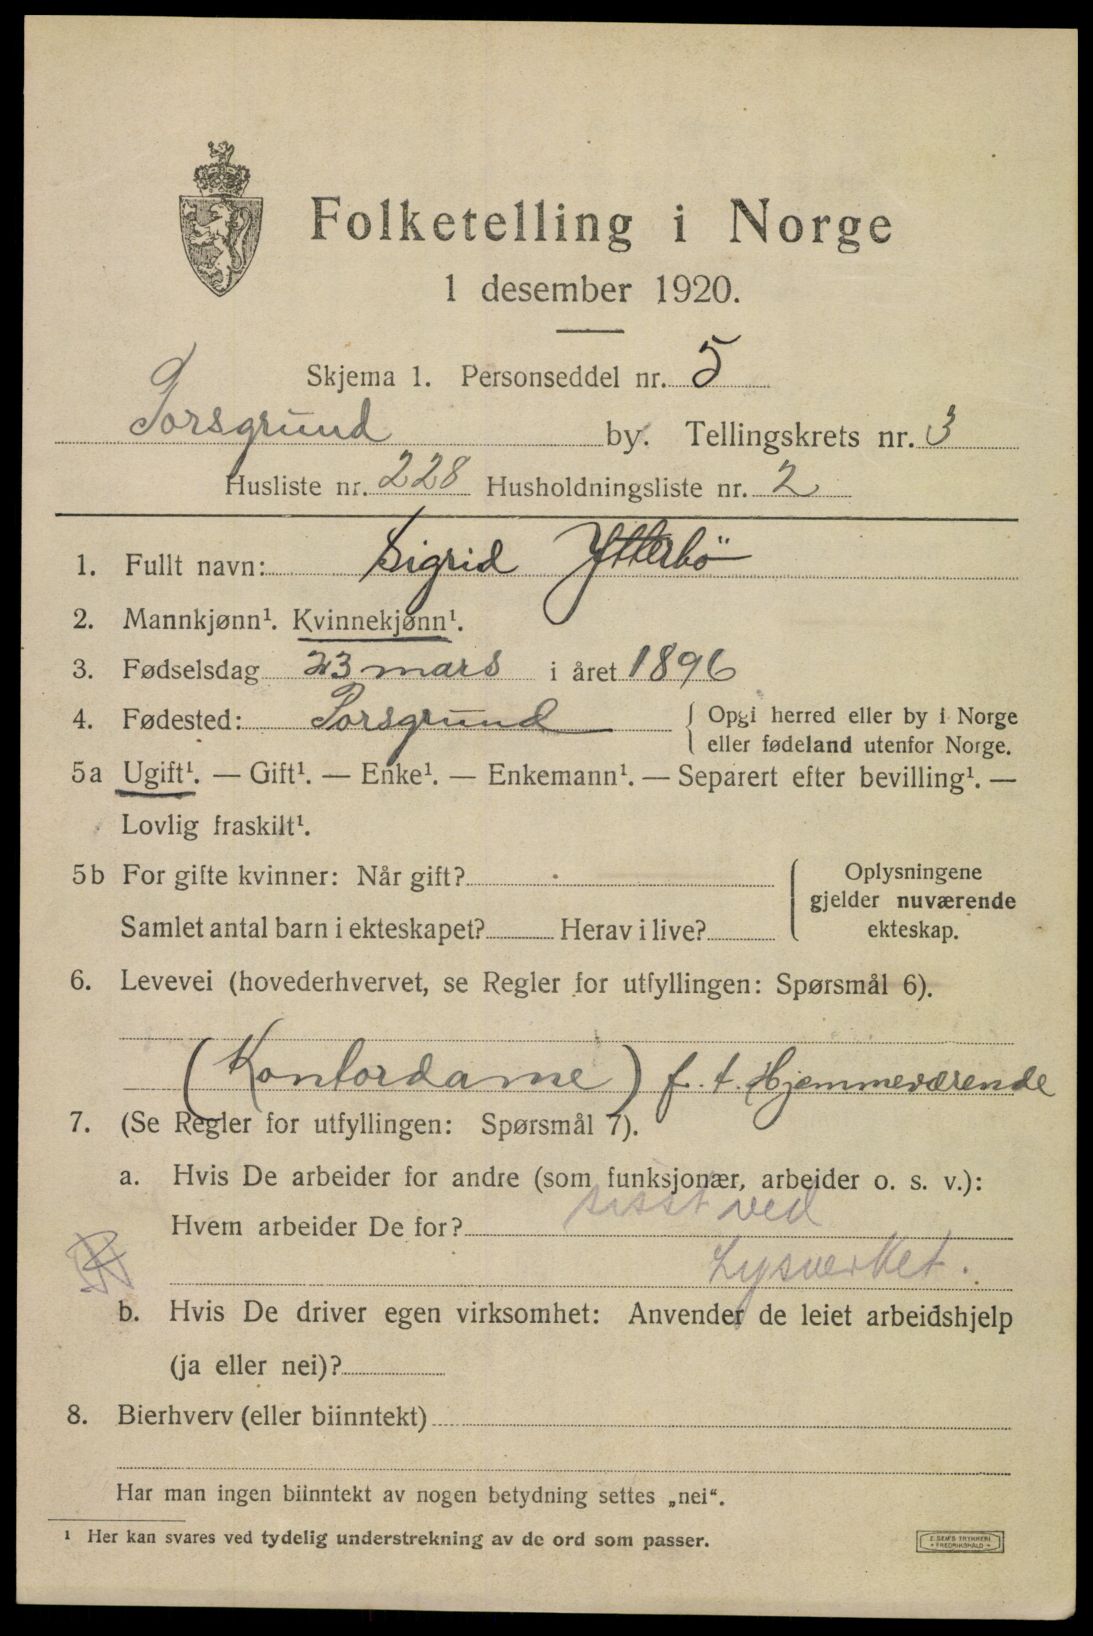 Folketelling i Norge
1 desember 1920.
Skjema 1. Personseddel nr. 5
Porsgrund by. Tellingskrets nr. 3
Husliste nr. 228 Husholdningsliste nr. 2
1. Fullt navn: Sigrid Ytterbö
2. Mannkjønn¹. Kvinnekjønn¹.
3. Fødselsdag 23 mars i året 1896
4. Fødested: Porsgrund { Opgi herred eller by i Norge
eller fødeland utenfor Norge.
5a Ugift¹. — Gift¹. — Enke¹. — Enkemann¹. — Separert efter bevilling¹. —
Lovlig fraskilt¹.
5b For gifte kvinner: Når gift? { Oplysningene
gjelder nuværende
Samlet antal barn i ekteskapet? Herav i live? ekteskap.
6. Levevei (hovederhvervet, se Regler for utfyllingen: Spørsmål 6).
(Kontordame) f. t. Hjemmeværende
7. (Se Regler for utfyllingen: Spørsmål 7).
a. Hvis De arbeider for andre (som funksjonær, arbeider o. s. v.):
Hvem arbeider De for? sisst ved
Lysverket.
b. Hvis De driver egen virksomhet: Anvender de leiet arbeidshjelp
(ja eller nei)?
8. Bierhverv (eller biinntekt)
Har man ingen biinntekt av nogen betydning settes „nei“.
¹ Her kan svares ved tydelig understrekning av de ord som passer.
E. SEM'S TRYKKERI
FREDRIKSHALD